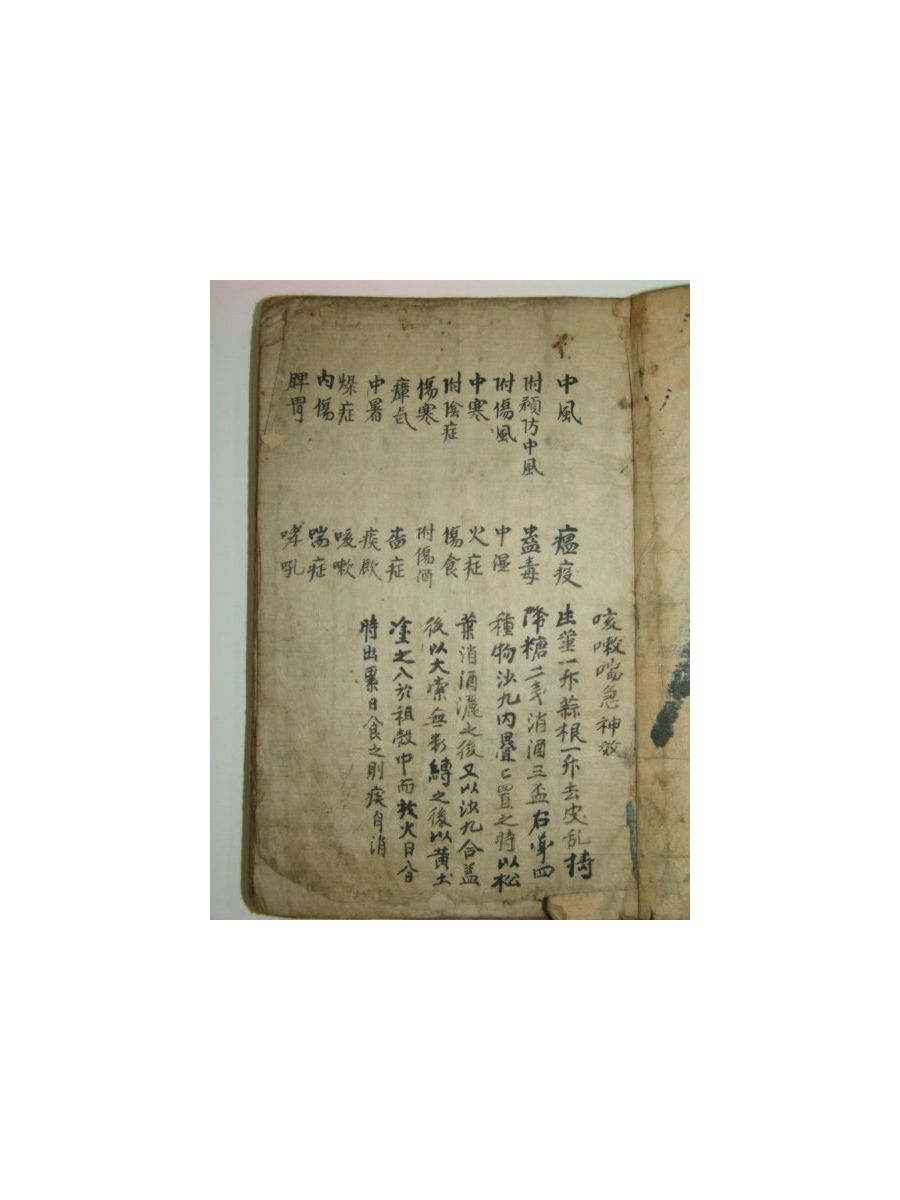 中風
附預防中風
附傷風
中寒
附陰症
傷寒
瘴氣
中暑
燥症
内傷
脾胃
瘟疫
蠱毒
中湿
火症
傷食
附傷酒
䘌症
痰厥
咳嗽
喘症
哮吼
咳嗽喘急神效
生薑一升蒜根一升去皮乱搗
降糖二戔消酒三盃右等四
種物沙九内疊〻置之時以松
葉消酒灑之後又以沙九合盖
後以大索無數縛之後以黄土
塗之入於租殼中而放火日分
時出累日食之則痰自消